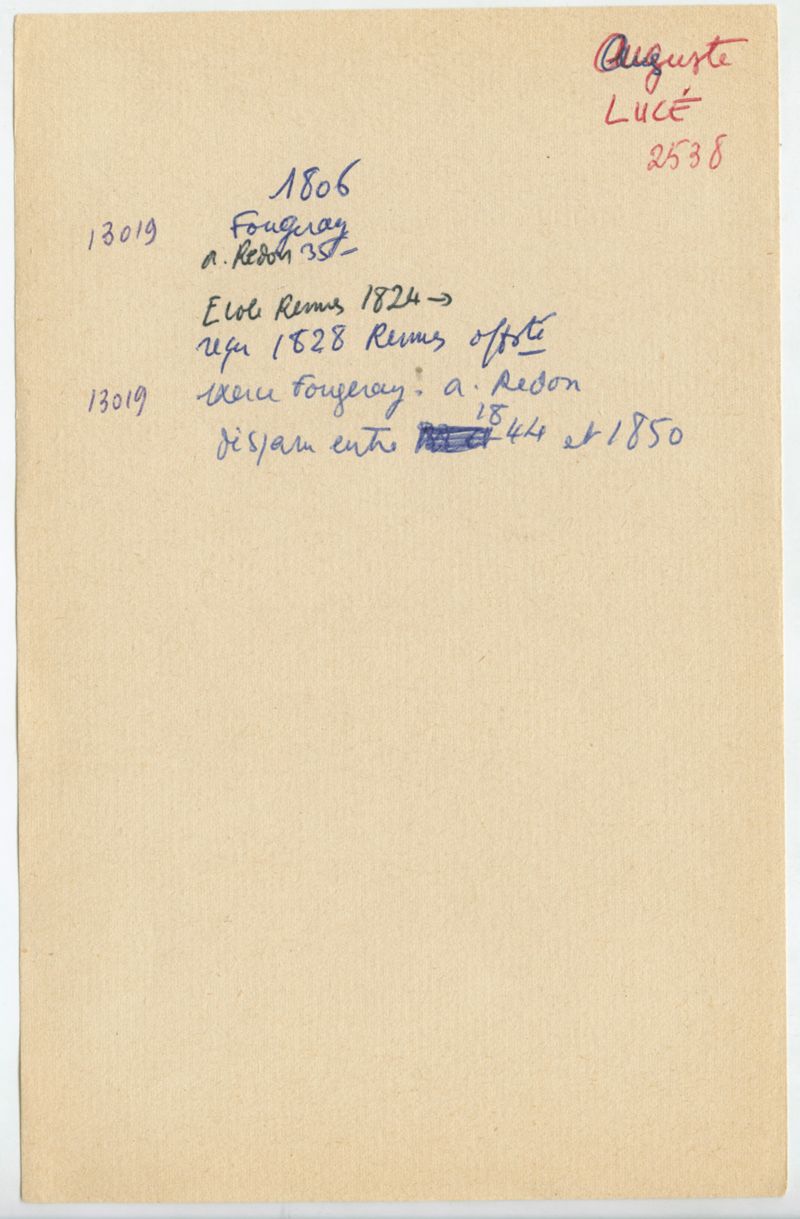 Auguste
LUCÉ
2538
1806
13019 Fougeray
a. Redon 35-
Ecole Rennes 1824 →
reçu 1828 Rennes offté
13019 exerce Fougeray. a. Redon
disparu entre 1844 et 1850